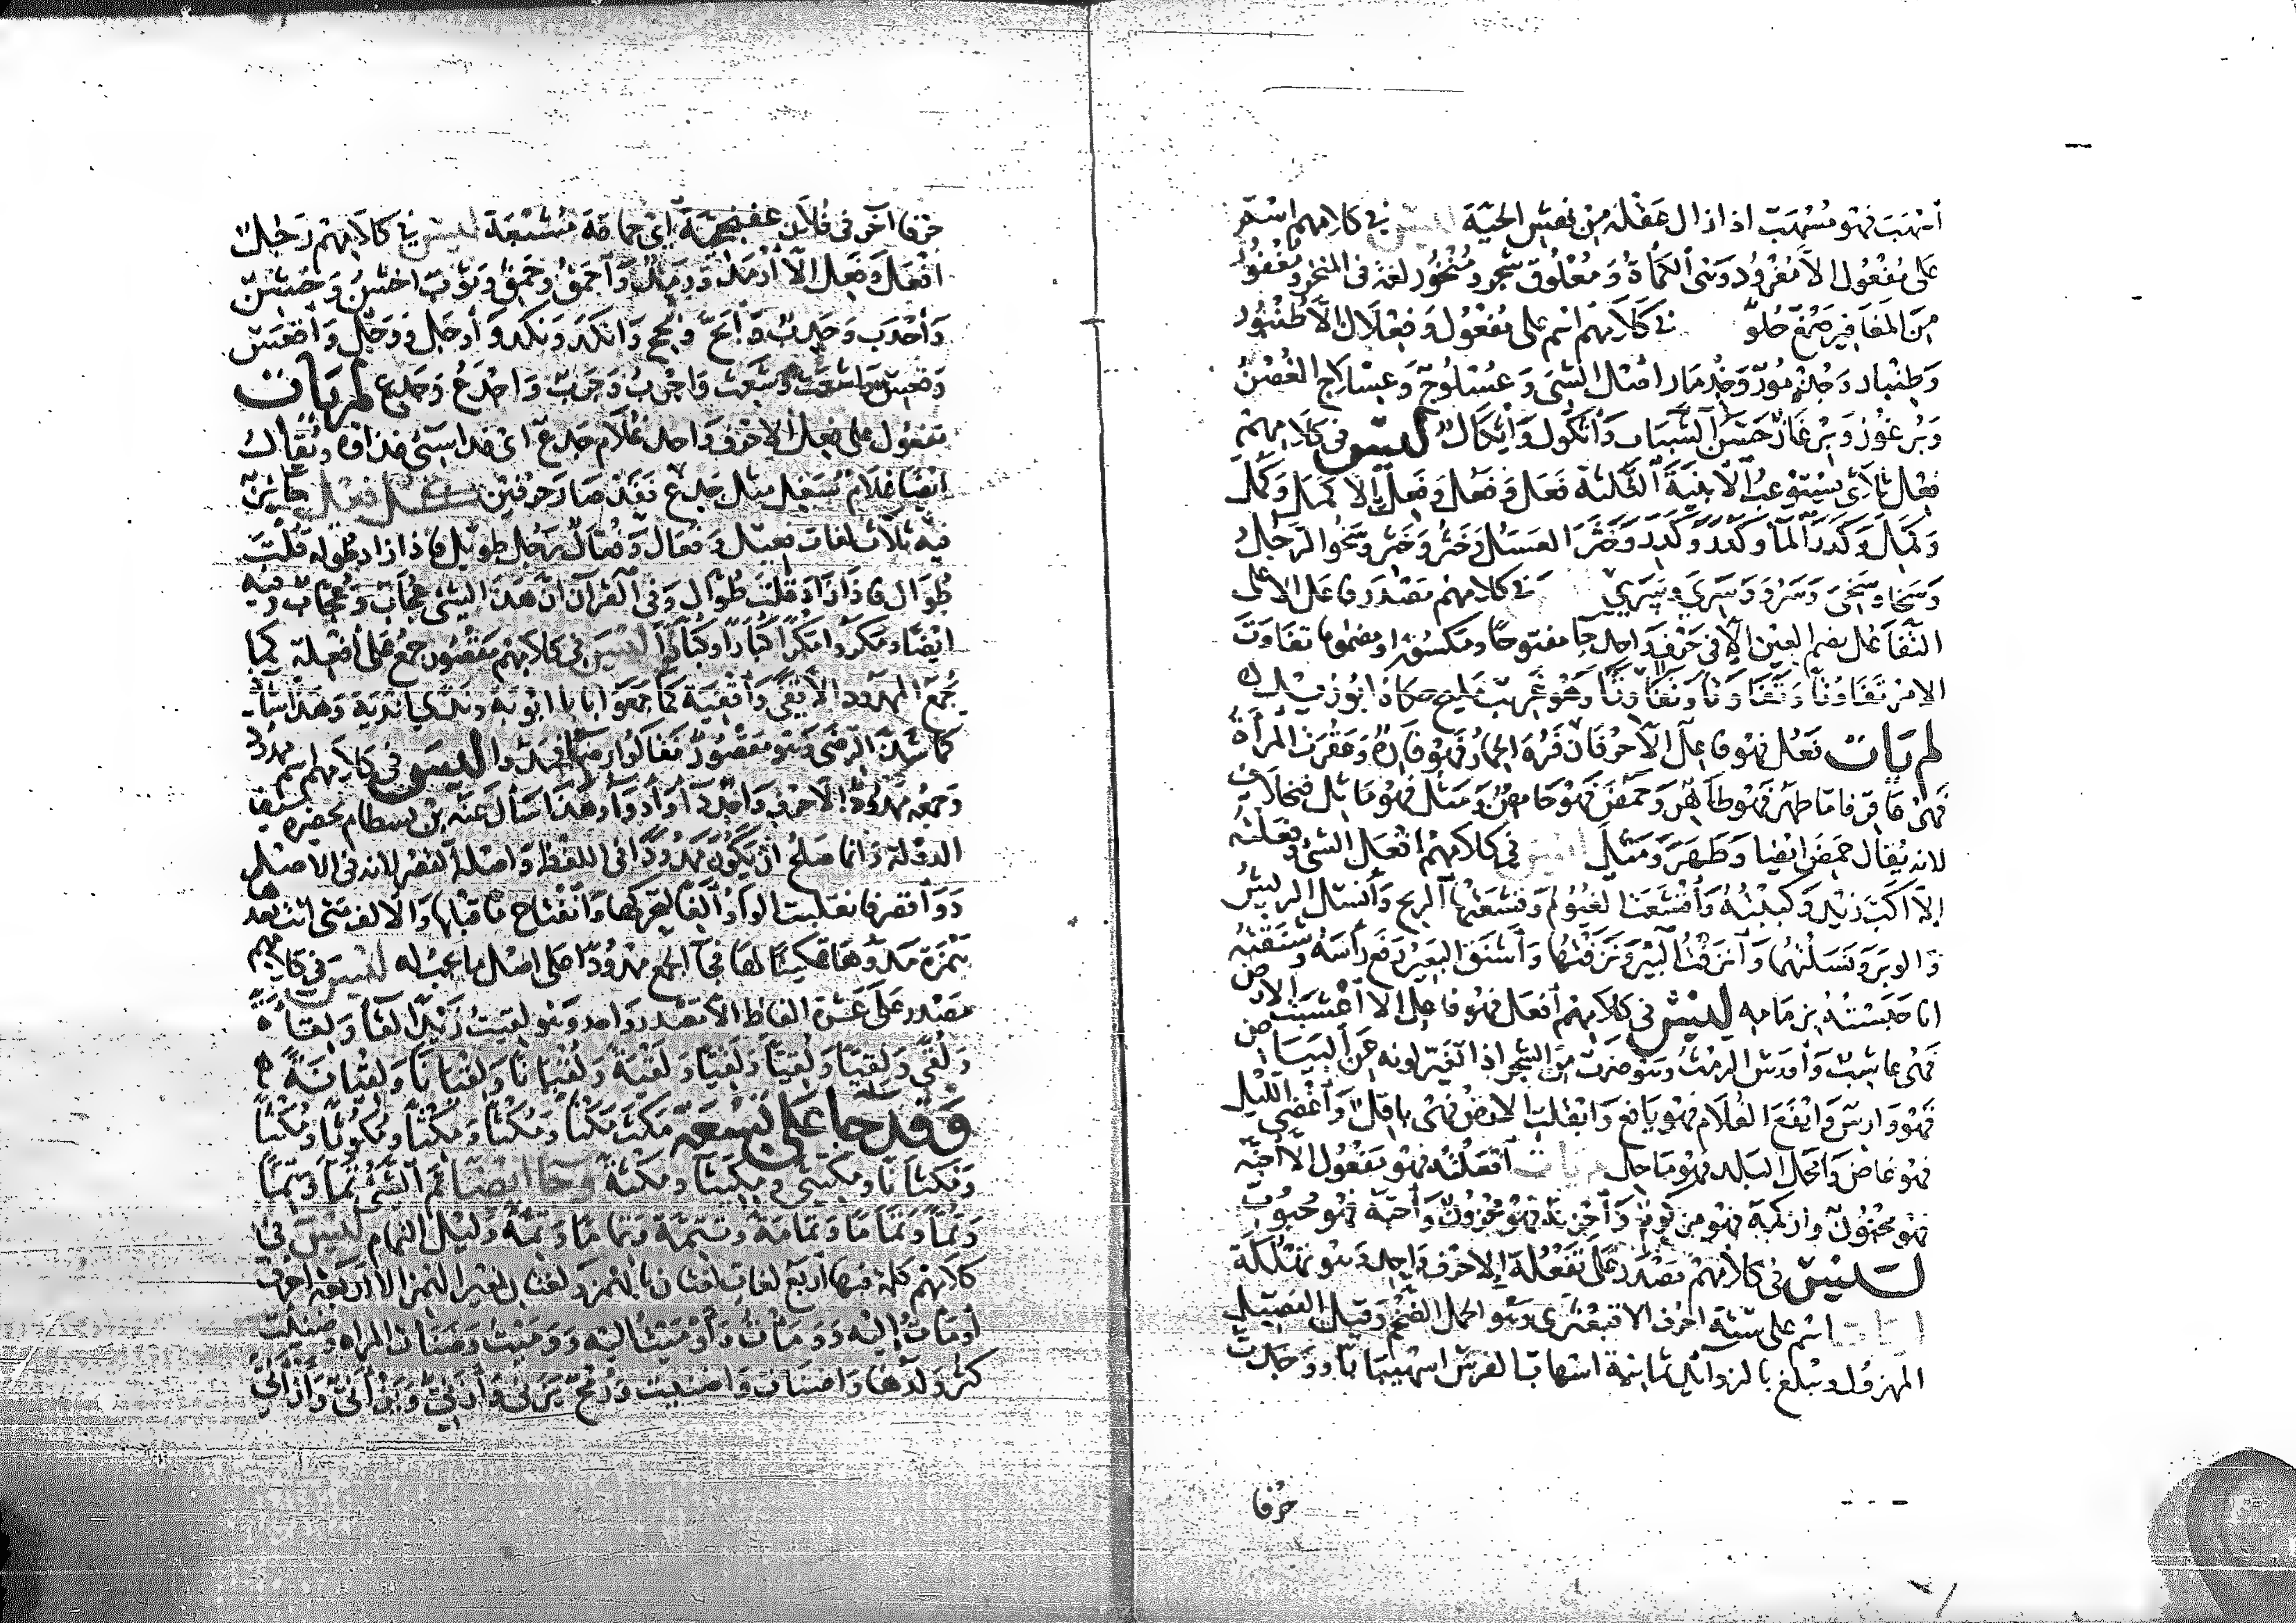 اسهب فهو مسهب اذا زال عقله من نهش الحية ليس في كلامهم اسم
على مفعول الا مغرود وهي الكمأة ومعلوق شجر ومنخور لغة في المنخر ومغفور
من المغافير صمغ حلو في كلامهم اسم على فعلول وفعلال الا طنبور
وطنبار وعسلوج وعسلاج الغصن
وبرغوز وبرغاز حسن الشباب وأثكول وأثكال ليس في كلامهم
فعل ثلاثي يستوعب الأبنية الثلاثة فعل وفعل وفعل الا كمل وكمل
وكمل وكدر الماء وكدر وكدر وخثر العسل وخثر وخثر وسخو الرجل
وسخا وسخي وسرو وسري في كلامهم مصدر تفاعل الا على
التفاعل بضم العين الا في حرف واحد جاء مفتوحا ومكسورا ومضموما تفاوت
الامر تفاوتا وتفاوتا وتفاوتا وهو غريب مليح حكاه ابو زيد
لم يأت فعل فهو فاعل الا حرفان فره الحمار فهو فاره وعقرت المرأة
فهي عاقر فاما طهر فهو طاهر وحمض فهو حامض ومثل فهو ماثل فبخلاف
لانه يقال حمض ايضا وطهر ومثل ليس في كلامهم افعل الشئ وفعلته
الا اكب زيد وكببته واقشعت الغيوم وقشعتها الريح وأنسل الريش
والوبر ونسلتهما وأنزفت البئر ونزفتها وأشنق البعير رفع رأسه وشنقته
انا حبسته بزمامه ليس في كلامهم افعل فهو فاعل الا اعشبت الارض
فهي عاشب وأورس الرمث وهو ضرب من الشجر اذا تغير لونه
فهو وارس وايفع الغلام فهو يافع وابقلت الارض فهي باقل وأغضى الليل
فهو غاض وامحل البلد فهو ماحل لم يأت افعلته فهو مفعول الا أجنه
فهو مجنون وازكمه فهو مزكوم وأحزنه فهو محزون وأحبه فهو محبوب
ليس في كلامهم مصدر على تفعلة الا حرف واحد وهو تهلكة
لم يأت اسم على ستة احرف الا قبعثرى وهو الجمل الضخم وقيل الفصيل
المهزول ويبلغ بالزوائد ثمانية اشهاب الفرس اشهيبابا ووجدت
حرفا
حرفا آخر في فلان عفنججية أي حماقة مشبعة ليس في كلامهم رجل
افعل وفعل الا أرمد ورمد وأحمق وحمق وثوب اخشن وخشن
وأحدب وحدب وأبح وبح وانكد ونكد وأوجل ووجل وأقعس
وقعس واشعث وشعث واجرب وجرب واجدع وجدع لم يأت
مفعول على فعل الا حرف واحد غلام جدع أي قد اسيئ غذاؤه ويقال
ايضا غلام سغل مثل جدع فقد صار حرفين كل فعيل جائز
فيه ثلاث لغات فعيل وفعال وفعال رجل طويل فاذا زاد طوله قلت
طوال فاذا زاد قلت طوال وفي القرآن ان هذا لشئ عجاب وعجاب وفيه
ايضا ومكروا مكرا كبارا وكبارا ليس في كلامهم مقصور جمع على أفعلة كما
يجمع الممدود الا قفى وأقفية كما جمعوا بابا ابوبة وندى اندية وهذا شاذ
كما شذ الرضى وهو مقصور فقالوا رضاء فمدوا ليس في كلامهم اسم ممدود
وجمعه ممدود الا حرف واحد داء وأدواء وهذا سأل عنه بن بسطام بحضرة سيف
الدولة وانما صلح ان يكون ممدودا في اللفظ وأصله القصر لانه في الاصل
دوأ قصر فانقلبت الواو ألفا لتحركها وانفتاح ما قبلها والالف متى اتت بعدها
همزة مدوها تمكينا لها فجاء الجمع ممدودا على اصل ما يجب له ليس في كلامهم
مصدر على عشرة الفاظ الا مصدر واحد وهو لقيت زيدا لقاء ولقاءة
ولقى ولقيا ولقيا ولقيا ولقية ولقيانا ولقيانا ولقيانة
وقد جاء على تسعة مكث مكثا ومكثا ومكثا ومكوثا ومكثا
ومكثانا ومكيثى ومكيثا ومكثة وجاء ايضا تم الشئ تما وتما
وتما وتماما وتمامة وتتمة وتماما وتمة وليل التمام ليس في
كلامهم كلمة فيها أربع لغات لغتان بالهمز ولغتان بغير الهمز الا أربعة احرف
أومأت اليه وومأت وأوميت اليه ووميت وضنأت المرأة وضنت
كثر ولدها واضنأت واضنت ورمح يزني وأزني ويزأني وأزأني